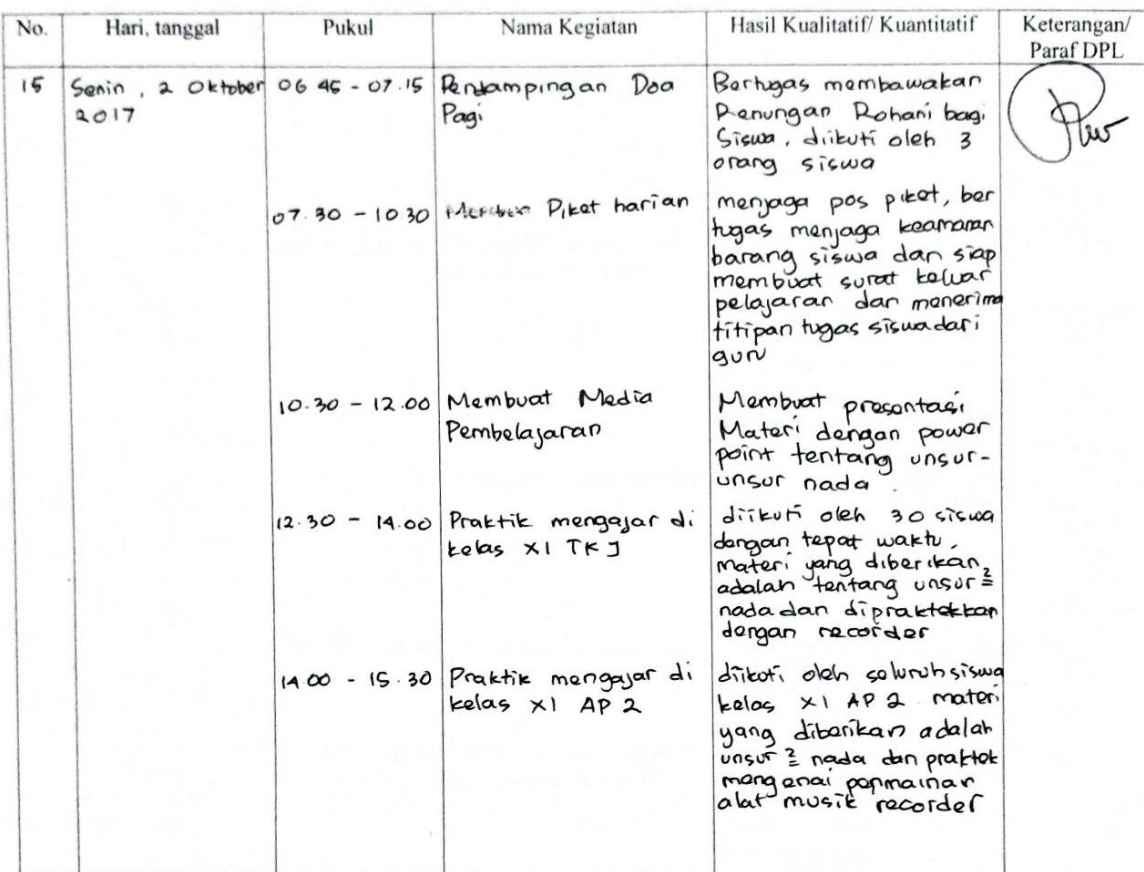 No. Hari, tanggal Pukul Nama Kegiatan Hasil Kualitatif/ Kuantitatif Keterangan/
Paraf DPL
15 Senin, 2 Oktober 06 45 - 07.15 Pendampingan Doa Bertugas membawakan
2017 Pagi Renungan Rohani bagi
siswa, diikuti oleh 3
orang siswa
07.30 - 10 30 Piket harian menjaga pos piket, ber
tugas menjaga keamanan
barang siswa dan siap
membuat surat keluar
pelajaran dan menerima
titipan tugas siswa dari
guru
10.30 - 12.00 Membuat Media Membuat presentasi
Pembelajaran Materi dengan power
point tentang unsur-
unsur nada.
12.30 - 14.00 Praktik mengajar di diikuti oleh 30 siswa
kelas XI TKJ dengan tepat waktu,
materi yang diberikan
adalah tentang unsur²
nada dan dipraktekkan
dengan recorder
14 00 - 15.30 Praktik mengajar di diikuti oleh seluruh siswa
kelas XI AP 2 kelas XI AP 2 materi
yang diberikan adalah
unsur² nada dan praktek
mengenai permainan
alat musik recorder